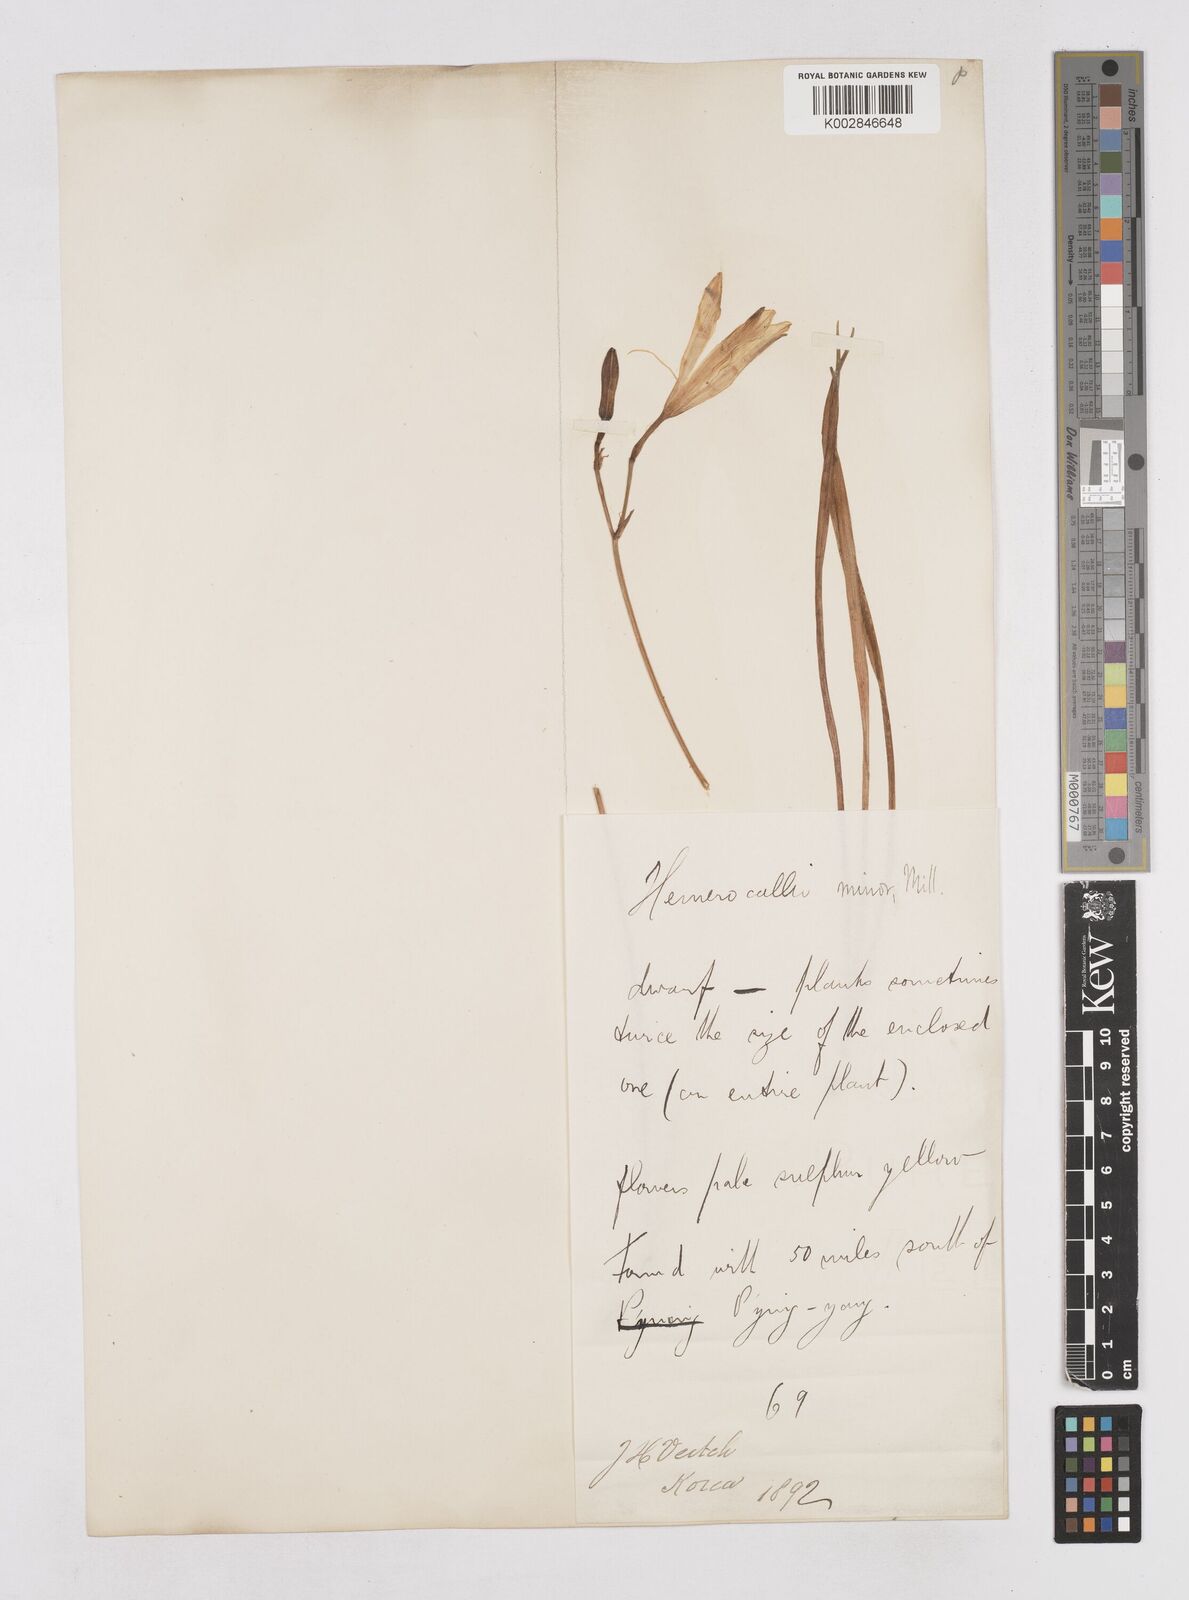 ROYAL BOTANIC GARDENS KEW
K002846648
Hemerocallis minor, Mill.
dwarf — plants sometimes
twice the size of the enclosed
one (an entire plant).
flowers pale sulphur yellow
Found with 50 miles south of
P'ying-yang.
69
J H Veitch
Korea 1892
inches
centimeters
Density
Don Williams
M000767
Kew
Royal Botanic Gardens
copyright reserved
0 1 2 3 4 5 6 7 8 9 10
cm